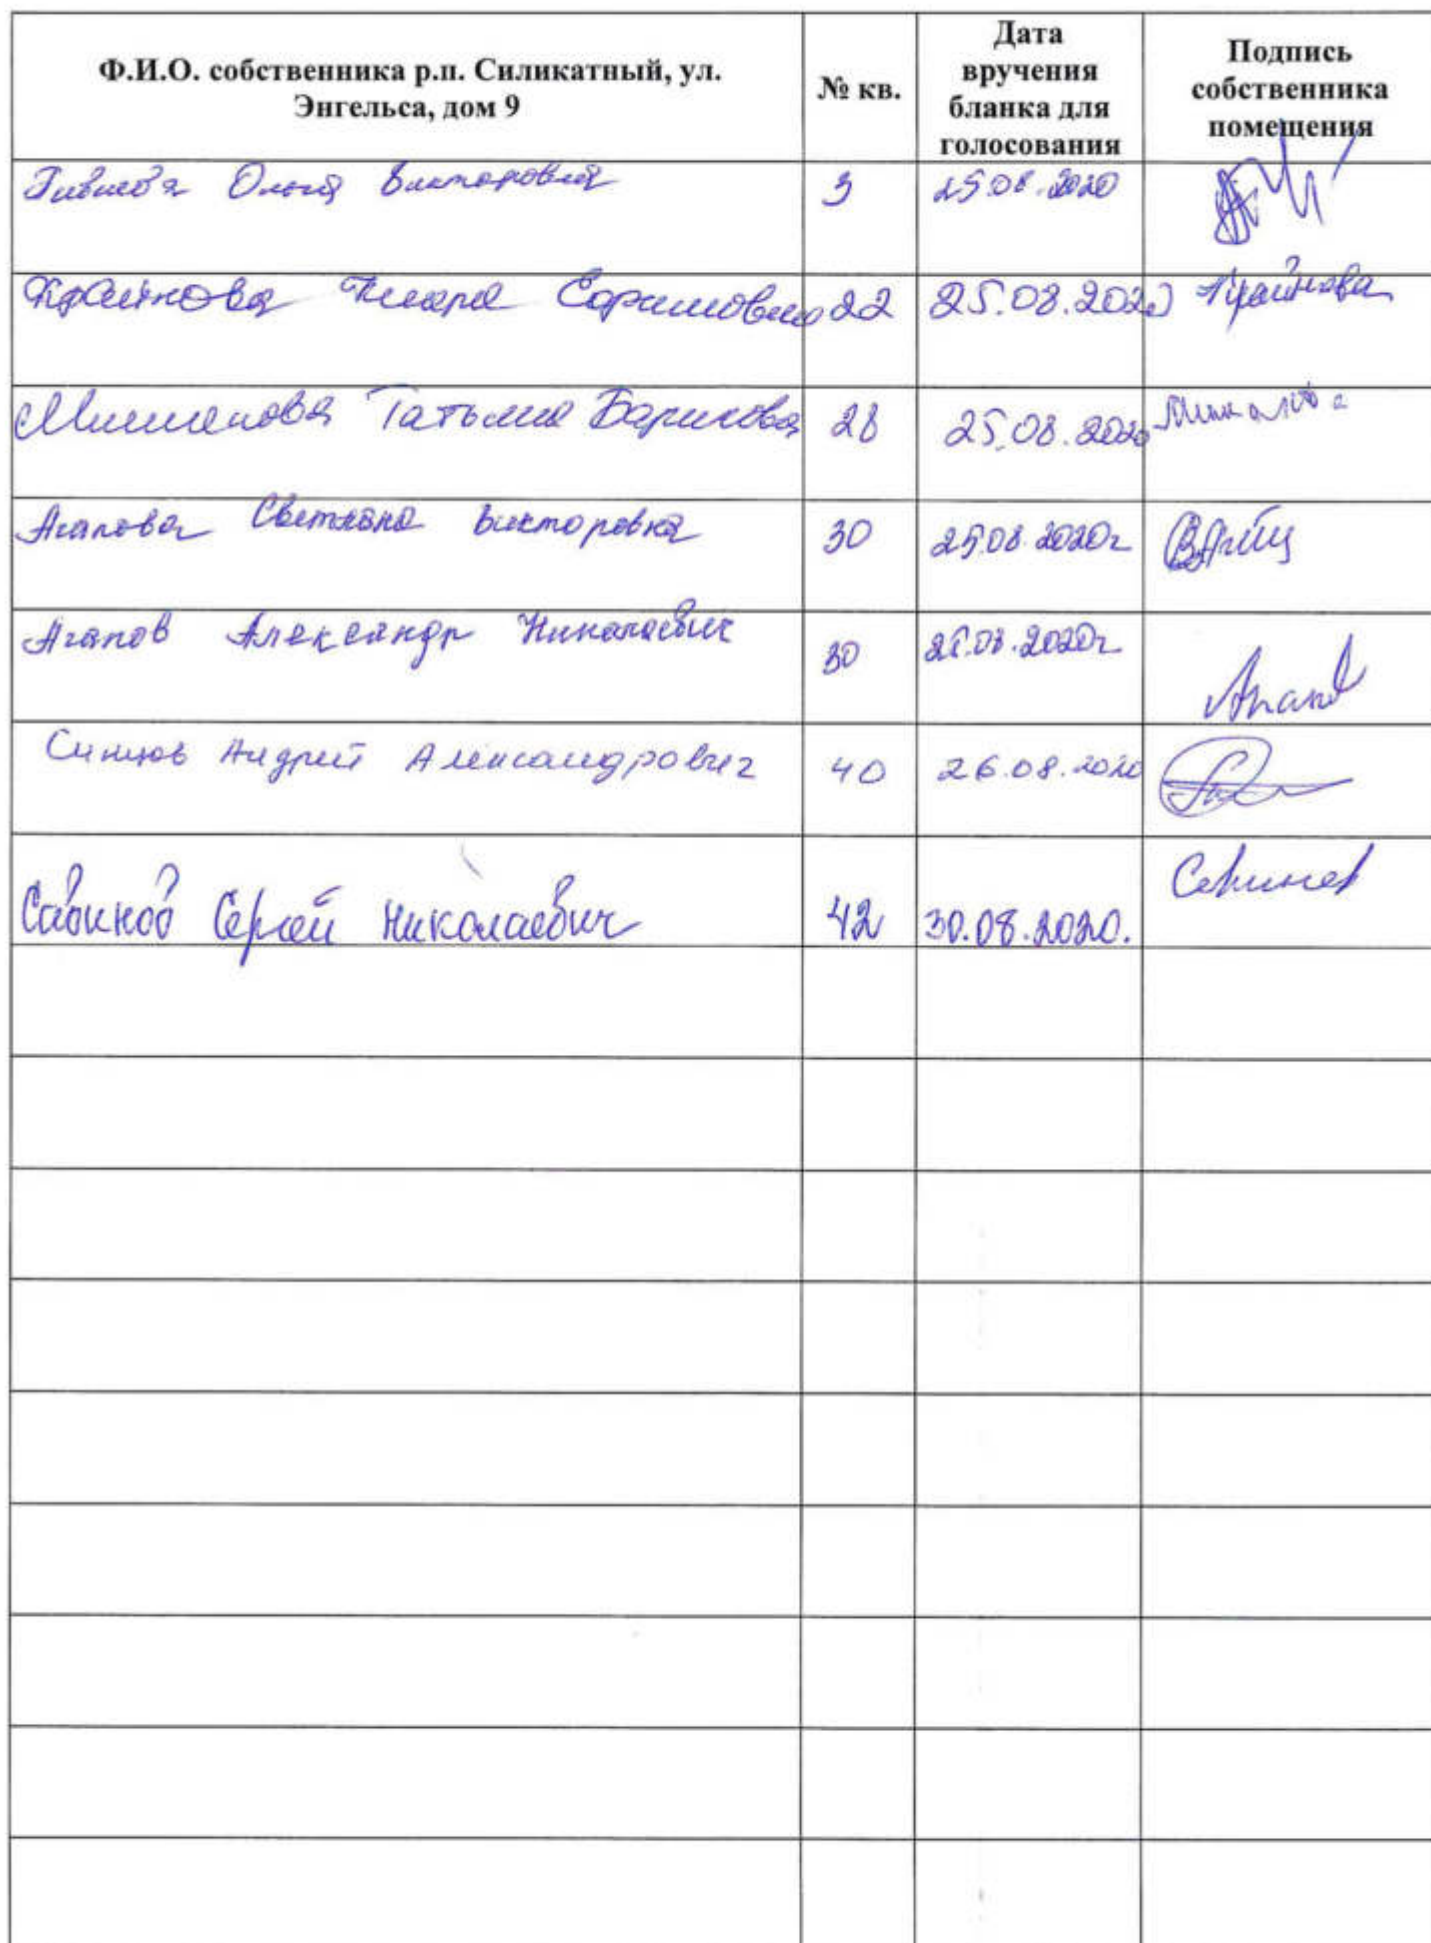 Ф.И.О. собственника р.п. Силикатный, ул.
Энгельса, дом 9
№ кв.
Дата
вручения
бланка для
голосования
Подпись
собственника
помещения
Ольга Викторовна 3 25.08.2020
Крайнова Борисовна 22 25.08.2020 Крайнова
Татьяна Борисовна 28 25.08.2020
Агапова Светлана Викторовна 30 25.08.2020г
Агапов Александр Николаевич 30 25.08.2020г. Агапов
Синцов Андрей Александрович 40 26.08.2020
Савинов Сергей Николаевич 42 30.08.2020. Савинов